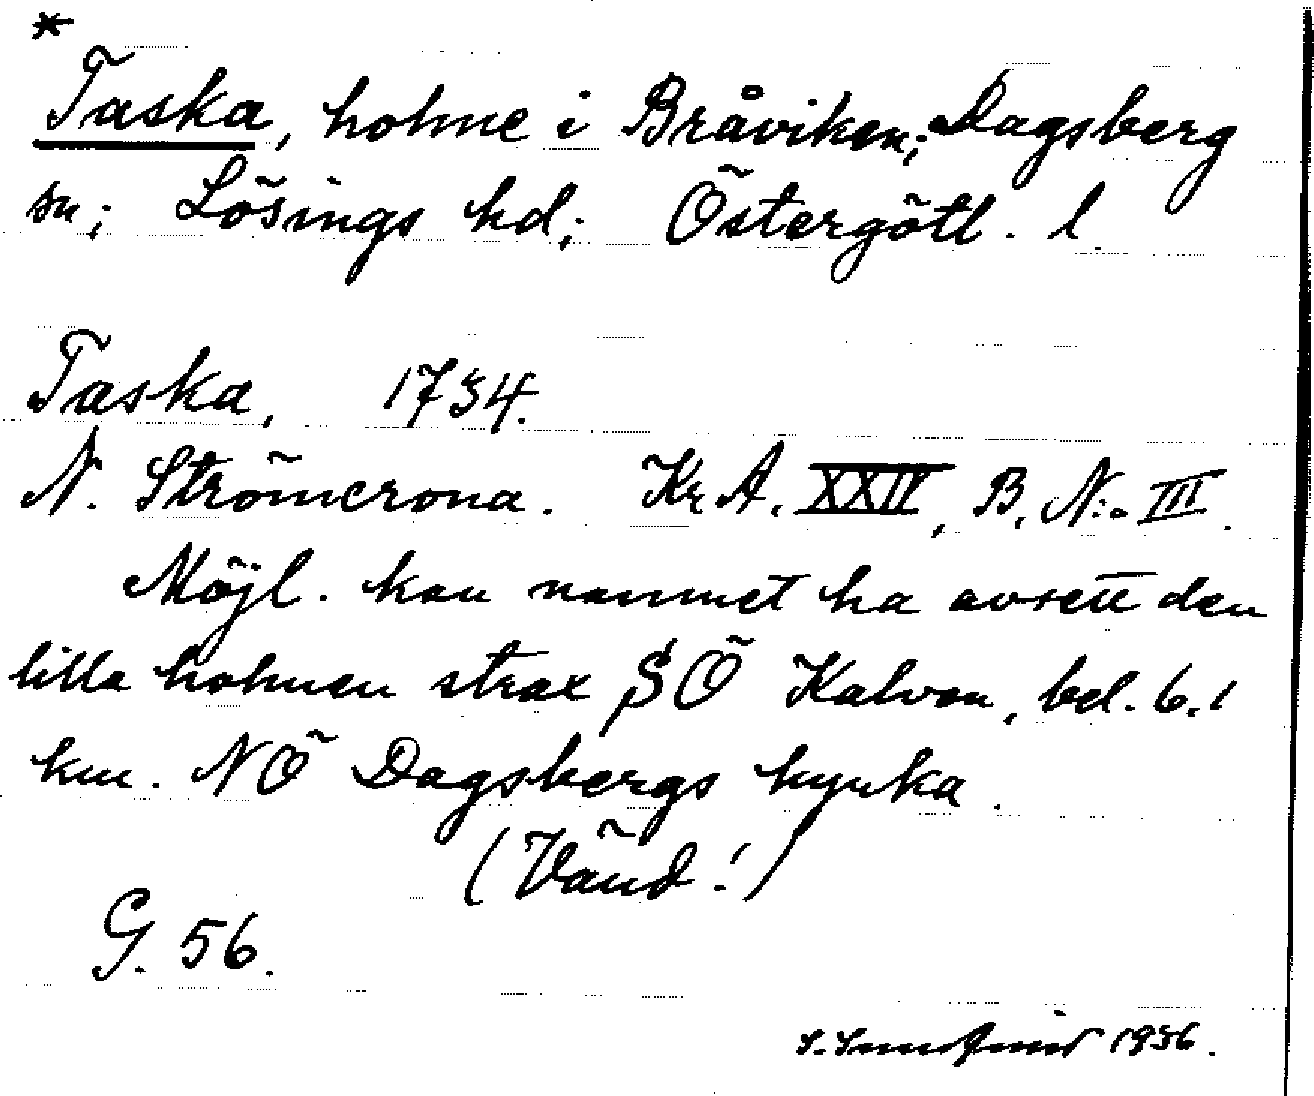 *
Taska, holme i Bråviken; Dagsberg
sn; Lösings hd; Östergötl. l.
Taska, 1734.
N. Strömcrona. Kr. A. XXIV, B. N:o III.
Möjl. kan namnet ha avsett den
lilla holmen strax SÖ Kalvön, bel. 6,1
km. NÖ Dagsbergs kyrka.
(Vänd!)
G. 56.
1936.